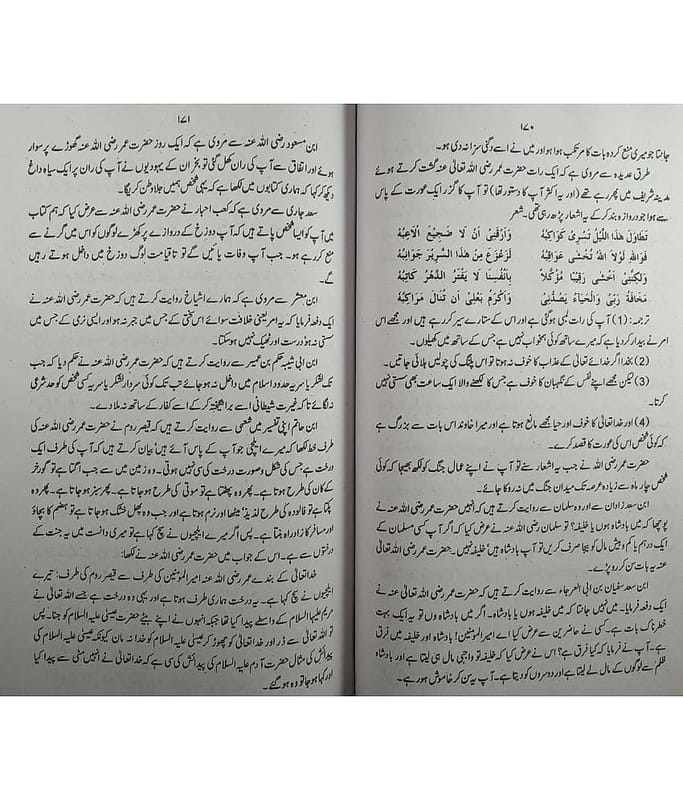 ۱۷۰
جانتا جو میری منع کردہ بات کا مرتکب ہوا ہو اور میں نے اسے دگنی سزا نہ دی ہو۔
طرق عدیدہ سے مروی ہے کہ ایک رات حضرت عمر رضی اللہ تعالیٰ عنہ گشت کرتے ہوئے
مدینہ شریف میں پھر رہے تھے (اور یہ اکثر آپ کا دستور تھا) تو آپ کا گزر ایک عورت کے پاس
سے ہوا جو دروازہ بند کر کے یہ اشعار پڑھ رہی تھی۔ شعر
تَطَاوَلَ هٰذَا اللَّيْلُ تَسْرِىْ كَوَاكِبُهٗ وَاَرَّقَنِىْ اَنْ لَا ضَجِيْعَ اُلَاعِبُهٗ
فَوَاللّٰهِ لَوْلَا اللّٰهُ تُخْشٰى عَوَاقِبُهٗ لَزُعْزِعَ مِنْ هٰذَا السَّرِيْرِ جَوَانِبُهٗ
وَلٰكِنَّنِىْ اَخْشٰى رَقِيْبًا مُوَكَّلًا بِاَنْفُسِنَا لَا يَفْتُرُ الدَّهْرَ كَاتِبُهٗ
مَخَافَةُ رَبِّىْ وَالْحَيَاءُ يَصُدُّنِىْ وَاُكْرِمُ بَعْلِىْ اَنْ تُنَالَ مَرَاكِبُهٗ
ترجمہ: (1) آپ کی رات لمبی ہو گئی ہے اور اس کے ستارے سیر کر رہے ہیں اور مجھے اس
امر نے بیدار کر دیا ہے کہ میرے ساتھ کوئی ہم خواب نہیں ہے جس کے ساتھ میں کھیلوں۔
(2) بخدا اگر خدائے تعالیٰ کے عذاب کا خوف نہ ہوتا تو اس پلنگ کی چولیں ہلائی جاتیں۔
(3) لیکن مجھے اپنے نفس کے نگہبان کا خوف ہے جس کا لکھنے والا ایک ساعت بھی سستی نہیں
کرتا۔
(4) اور خدا تعالیٰ کا خوف اور حیا مجھے مانع ہوتا ہے اور میرا خاوند اس بات سے بزرگ ہے
کہ کوئی شخص اس کی عورت کا قصد کرے۔
حضرت عمر رضی اللہ نے جب یہ اشعار سنے تو آپ نے اپنے عمال جنگ کو لکھ بھیجا کہ کوئی
شخص چار ماہ سے زیادہ عرصہ تک میدان جنگ میں نہ روکا جائے۔
ابن سعد زادان سے اور وہ سلمان سے روایت کرتے ہیں کہ انہیں حضرت عمر رضی اللہ نے
پوچھا کہ میں بادشاہ ہوں یا خلیفہ؟ تو سلمان رضی اللہ عنہ نے عرض کیا کہ اگر آپ کسی مسلمان کے
ایک درہم یا کم و بیش مال کو بیجا صرف کریں تو آپ بادشاہ ہیں' خلیفہ نہیں۔ حضرت عمر رضی اللہ تعالیٰ
عنہ یہ بات سن کر رو پڑے۔
ابن سعد سفیان بن ابی العرجاء سے روایت کرتے ہیں کہ حضرت عمر رضی اللہ تعالیٰ عنہ نے
ایک دفعہ فرمایا۔ میں نہیں جانتا کہ میں خلیفہ ہوں یا بادشاہ۔ اگر میں بادشاہ ہوں تو یہ ایک بہت
خطرناک بات ہے۔ کسی نے حاضرین سے عرض کیا اے امیر المومنین! بادشاہ اور خلیفہ میں فرق
ہے۔ آپ نے فرمایا کہ کیا فرق ہے؟ اس نے عرض کیا کہ خلیفہ تو واجبی مال ہی لیتا ہے اور بادشاہ
ظلم سے لوگوں کے مال لے لیتا ہے اور دوسروں کو دیتا ہے۔ آپ یہ سن کر خاموش ہو رہے۔
۱۷۱
ابن مسعود رضی اللہ عنہ سے مروی ہے کہ ایک روز حضرت عمر رضی اللہ عنہ گھوڑے پر سوار
ہوئے اور اتفاق سے آپ کی ران کھل گئی تو نجران کے یہودیوں نے آپ کی ران پر ایک سیاہ داغ
دیکھ کر کہا کہ ہماری کتابوں میں لکھا ہے کہ یہی شخص ہمیں جلاوطن کریگا۔
سعد جاری سے مروی ہے کہ کعب احبار نے حضرت عمر رضی اللہ عنہ سے عرض کیا کہ ہم کتاب
میں آپ کو ایسا شخص پاتے ہیں کہ آپ دوزخ کے دروازے پر کھڑے لوگوں کو اس میں گرنے سے
منع کر رہے ہو۔ جب آپ وفات پائیں گے تو تاقیامت لوگ دوزخ میں داخل ہوتے رہیں
گے۔
ابن معشر سے مروی ہے کہ ہمارے اشیاخ روایت کرتے ہیں کہ حضرت عمر رضی اللہ عنہ نے
ایک دفعہ فرمایا کہ یہ امر یعنی خلافت سوائے اس سختی کے جس میں جبر نہ ہو اور ایسی نرمی کے جس میں
سستی نہ ہو درست اور ٹھیک نہیں ہو سکتا۔
ابن ابی شیبہ حکم بن عمیر سے روایت کرتے ہیں کہ حضرت عمر رضی اللہ عنہ نے حکم دیا کہ جب
تک لشکر یا سریہ حدود اسلام میں داخل نہ ہو جائے تب تک کوئی سردار لشکر یا سریہ کسی شخص کو حد شرعی
نہ لگائے تاکہ غیرت شیطانی اسے برانگیختہ کر کے اسے کفار کے ساتھ نہ ملا دے۔
ابن حاتم اپنی تفسیر میں شعبی سے روایت کرتے ہیں کہ قیصر روم نے حضرت عمر رضی اللہ عنہ کی
طرف خط لکھا کہ میرے ایلچی جو آپ کے پاس آئے ہیں' بیان کرتے ہیں کہ آپ کی طرف ایک
درخت ہے جس کی شکل و صورت درخت کی سی نہیں ہوتی۔ وہ زمین میں سے جب اگتا ہے تو گورخر
کے کان کی طرح ہوتا ہے۔ پھر وہ پھٹتا ہے تو موتی کی طرح ہو جاتا ہے۔ پھر سبز ہو جاتا ہے۔ پھر وہ
پکتا ہے تو فالودہ کی طرح لذیذ' میٹھا اور نرم ہوتا ہے اور جب وہ پھل خشک ہو جاتا ہے تو ہضم کا بچاؤ
اور مسافر کا زاد راہ بنتا ہے۔ پس اگر میرے ایلچیوں نے سچ کہا ہے تو میری دانست میں یہ جنت کے
درختوں سے ہے۔ اس کے جواب میں حضرت عمر رضی اللہ عنہ نے لکھا:
خدا تعالیٰ کے بندے عمر رضی اللہ عنہ امیر المومنین کی طرف سے قیصر روم کی طرف: تیرے
ایلچیوں نے سچ کہا ہے۔ یہ درخت ہماری طرف ہوتا ہے اور یہی وہ درخت ہے جسے اللہ تعالیٰ نے
مریم علیہا السلام کے واسطے پیدا کیا تھا جبکہ انہوں نے اپنے بیٹے حضرت عیسیٰ علیہ السلام کو جنا۔ پس
تو اللہ تعالیٰ سے ڈر اور خدا تعالیٰ کو چھوڑ کر عیسیٰ علیہ السلام کو خدا نہ مان کیونکہ عیسیٰ علیہ السلام کی
پیدائش کی مثال حضرت آدم علیہ السلام کی پیدائش کی سی ہے کہ خدا تعالیٰ نے انہیں مٹی سے پیدا کیا
اور کہا ہو جا تو وہ ہو گئے۔